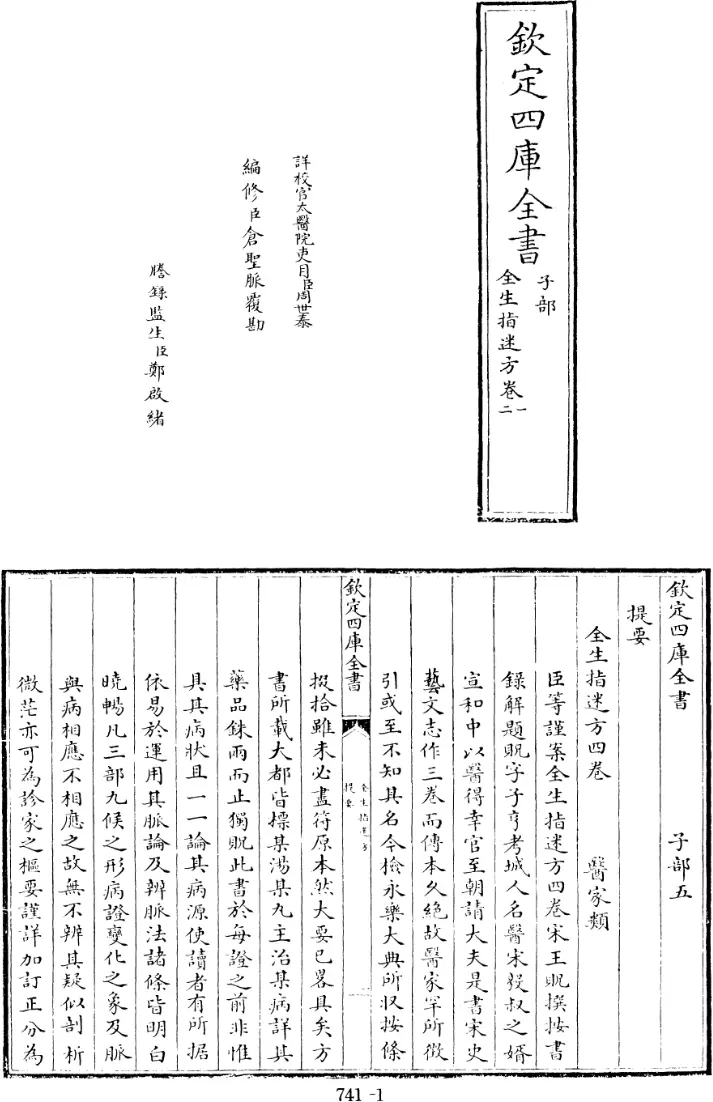 欽定四庫全書
子部
全生指迷方卷一二
詳校官太醫院吏目臣周世泰
編修臣倉聖脈覆勘
謄錄監生臣鄭啟緒
欽定四庫全書 子部五
提要
全生指迷方四卷 醫家類
臣等謹案全生指迷方四卷宋王貺撰按書
錄解題貺字子亨考城人名醫宋毅叔之婿
宣和中以醫得幸官至朝請大夫是書宋史
藝文志作三卷而傳本久絕故醫家罕所徵
引或至不知其名今檢永樂大典所收按條
欽定四庫全書
全生指迷方
提要
掇拾雖未必盡符原本然大要已畧具矣方
書所載大都皆標某湯某丸主治某病詳其
藥品銖兩而止獨貺此書於每證之前非惟
具其病狀且一一論其病源使讀者有所据
依易於運用其脈論及辨脈法諸條皆明白
曉暢凡三部九候之形病證變化之象及脈
與病相應不相應之故無不辨其疑似剖析
微茫亦可為診家之樞要謹詳加訂正分為
741-1